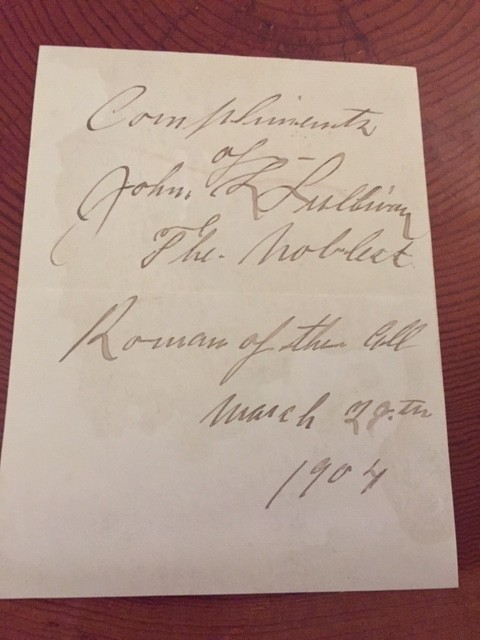 Compliments
of
John L Sullivan
The. Noblest
Roman of the. All
March 28.th
1904